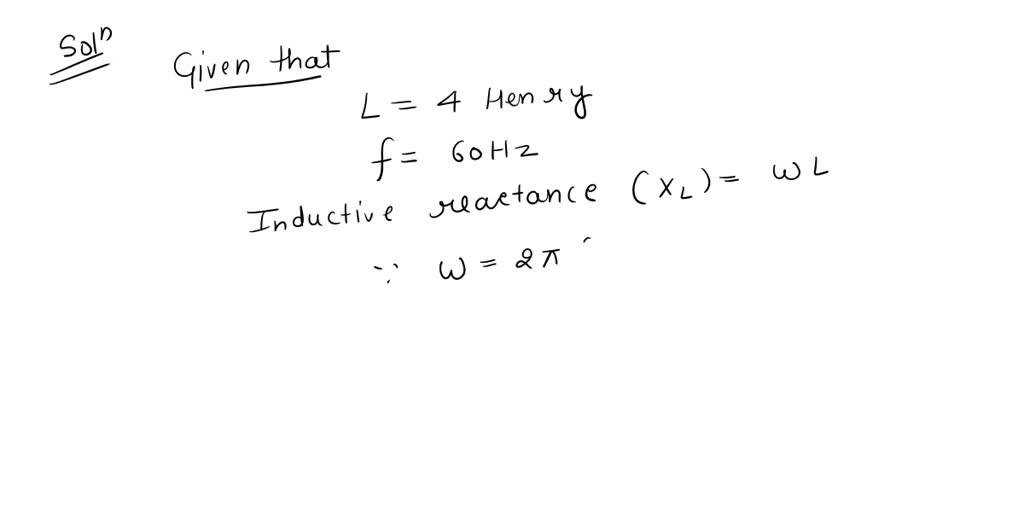 Solⁿ
Given that
L = 4 Henry
f = 60Hz
Inductive reactance (X_L) = ωL
∵ ω = 2π